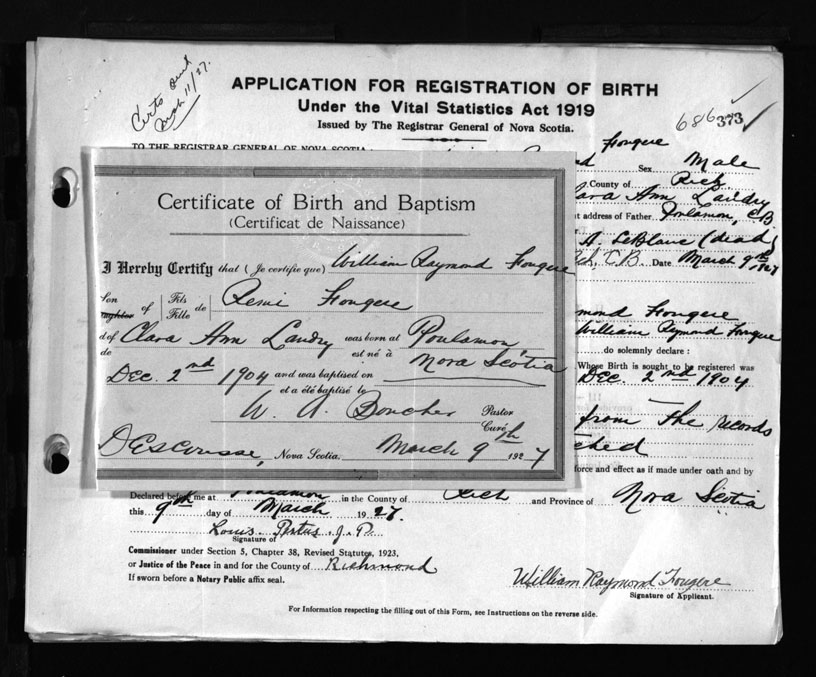 Certs sent
Mch 11/27.
APPLICATION FOR REGISTRATION OF BIRTH
Under the Vital Statistics Act 1919
Issued by The Registrar General of Nova Scotia.
686 373
TO THE REGISTRAR GENERAL OF NOVA SCOTIA
Fougere
Sex Male
County of Rich
Clara Ann Landry
address of Father Poulamon, C.B
A. LeBlanc (dead)
C.B. Date March 9th 1927
Certificate of Birth and Baptism
(Certificat de Naissance)
I Hereby Certify that (Je certifie que) William Raymond Fougere
Son
Daughter of | Fils
Fille de Remi Fougere
& of
de Clara Ann Landry was born at
est né à Poulamon
Nova Scotia
Dec. 2nd 1904 and was baptised on
et a été baptisé le
W. A. Boucher Pastor
Curé
D'Escousse, Nova Scotia. March 9th 1927
mond Fougere
William Raymond Fougere
do solemnly declare :
Whose Birth is sought to be registered was
Dec. 2nd 1904
from the records
ched
force and effect as if made under oath and by
Declared before me at Poulamon in the County of Rich and Province of Nova Scotia
this 9th day of March 1927.
Louis Petus J. P.
Signature of
Commissioner under Section 5, Chapter 38, Revised Statutes, 1923.
or Justice of the Peace in and for the County of Richmond
If sworn before a Notary Public affix seal.
William Raymond Fougere
Signature of Applicant.
For Information respecting the filling out of this Form, see Instructions on the reverse side.